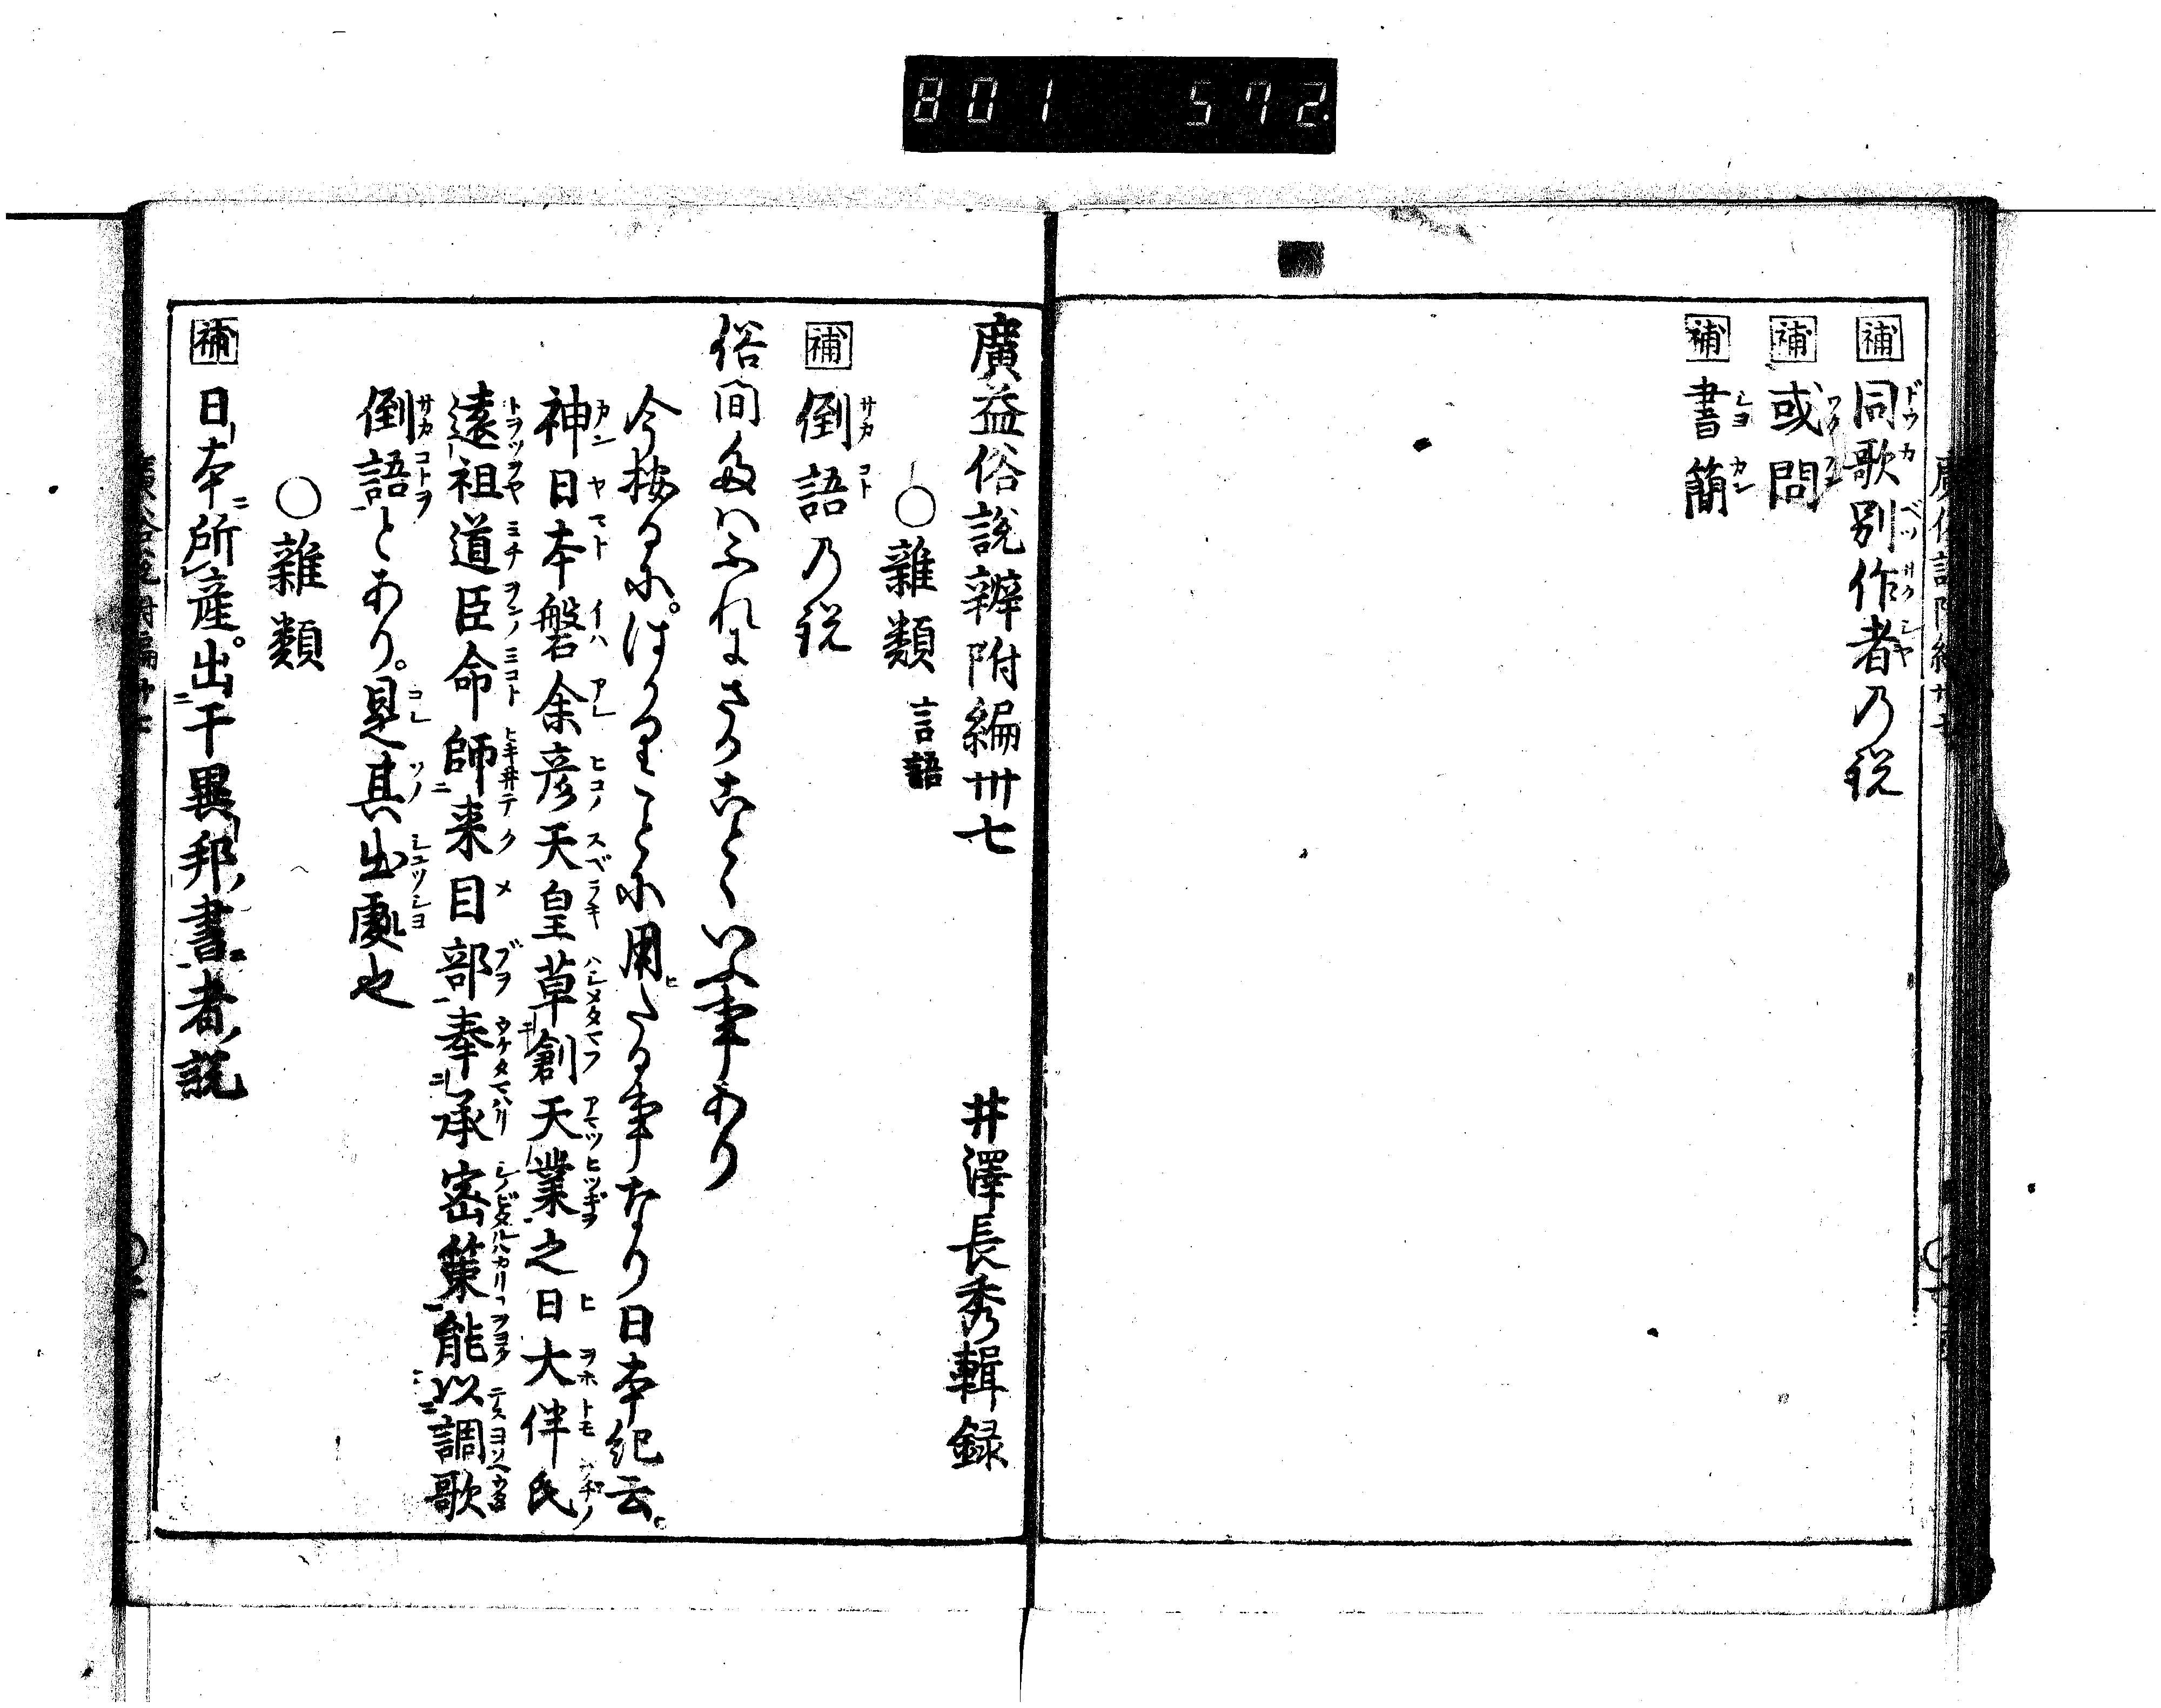 801 572
補 同歌別作者乃説
補 或問
補 書簡
廣益俗說辯附編卅七 井澤長秀輯録
○雜類 言語
補 倒語乃説
俗間たはふれにさかことゝいふ事あり
今按るに。はかりことに用たる事なり日本紀云。
神日本磐余彦天皇草創天業之日大伴氏
遠祖道臣命師来目部奉承密策能以諷歌
倒語とあり。是其出處也
○雜類
補 日本所産。出干異邦書者說